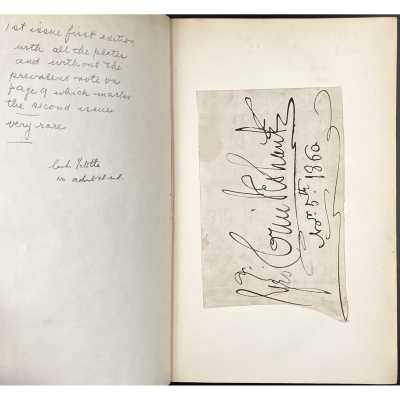 1st issue first edition
with all the plates
and without the
prevalent note on
page 9 which marks
the second issue
very rare
in
Geo Cruikshank
Nov. 5th. 1860